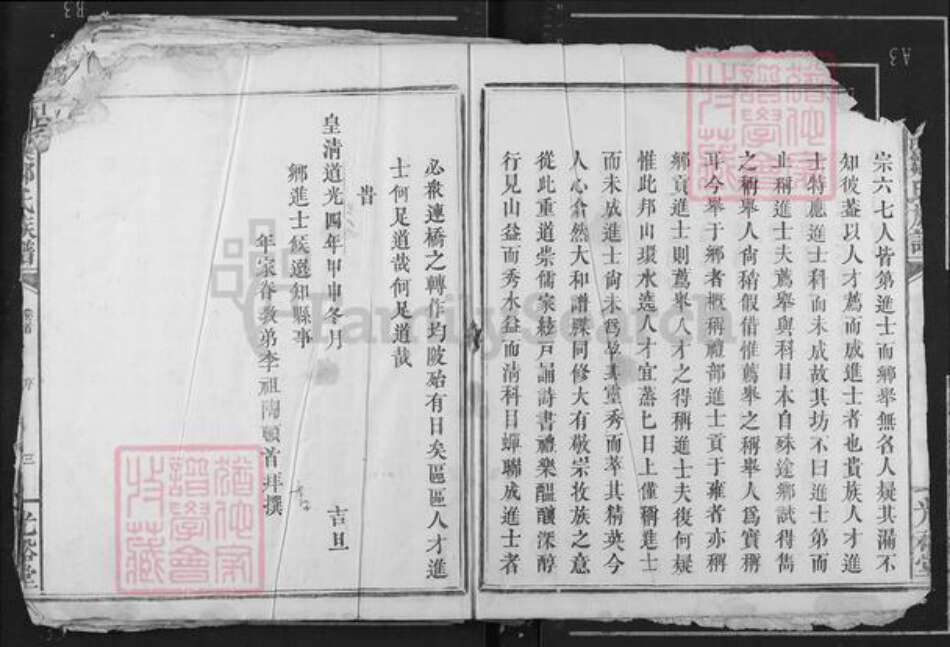 宗六七人皆第進士而鄉舉無名人疑其漏不
知彼蓋以人才薦而成進士者也貴族人才進
士特應進士科而未成故其坊不曰進士第而
止稱進士夫薦舉與科目本自殊途鄉試得雋
之稱舉人尚稍假借惟薦舉之稱舉人爲實稱
耳今舉于鄉者概稱禮部進士貢于雍者亦稱
鄉貢進士則薦舉人才之得稱進士夫復何疑
惟此邦山環水遶人才宜蒸匕日上僅稱進士
而未成進士尚未爲
靈秀而萃其精英今
人心
然大和譜牒同修大有敬宗收族之意
從此重道崇儒家絃戸誦詩書禮樂醞釀深醇
行見山益而秀水益而清科目蟬聯成進士者
必衆連橋之轉作均陂殆有日矣區區人才進
士何足道哉何足道哉
旹
皇清道光四年甲申冬月
吉旦
鄉進士候選知縣事
年家眷教弟李祖陶頓首拜撰
氏族譜
卷首
序
三
光裕堂
FamilySearch
A3
B3